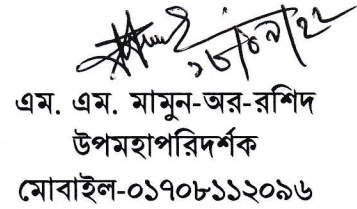 ১৮/০৯/২২
এম. এম. মামুন-অর-রশিদ
উপমহাপরিদর্শক
মোবাইল-০১৭০৮১১২০৯৬